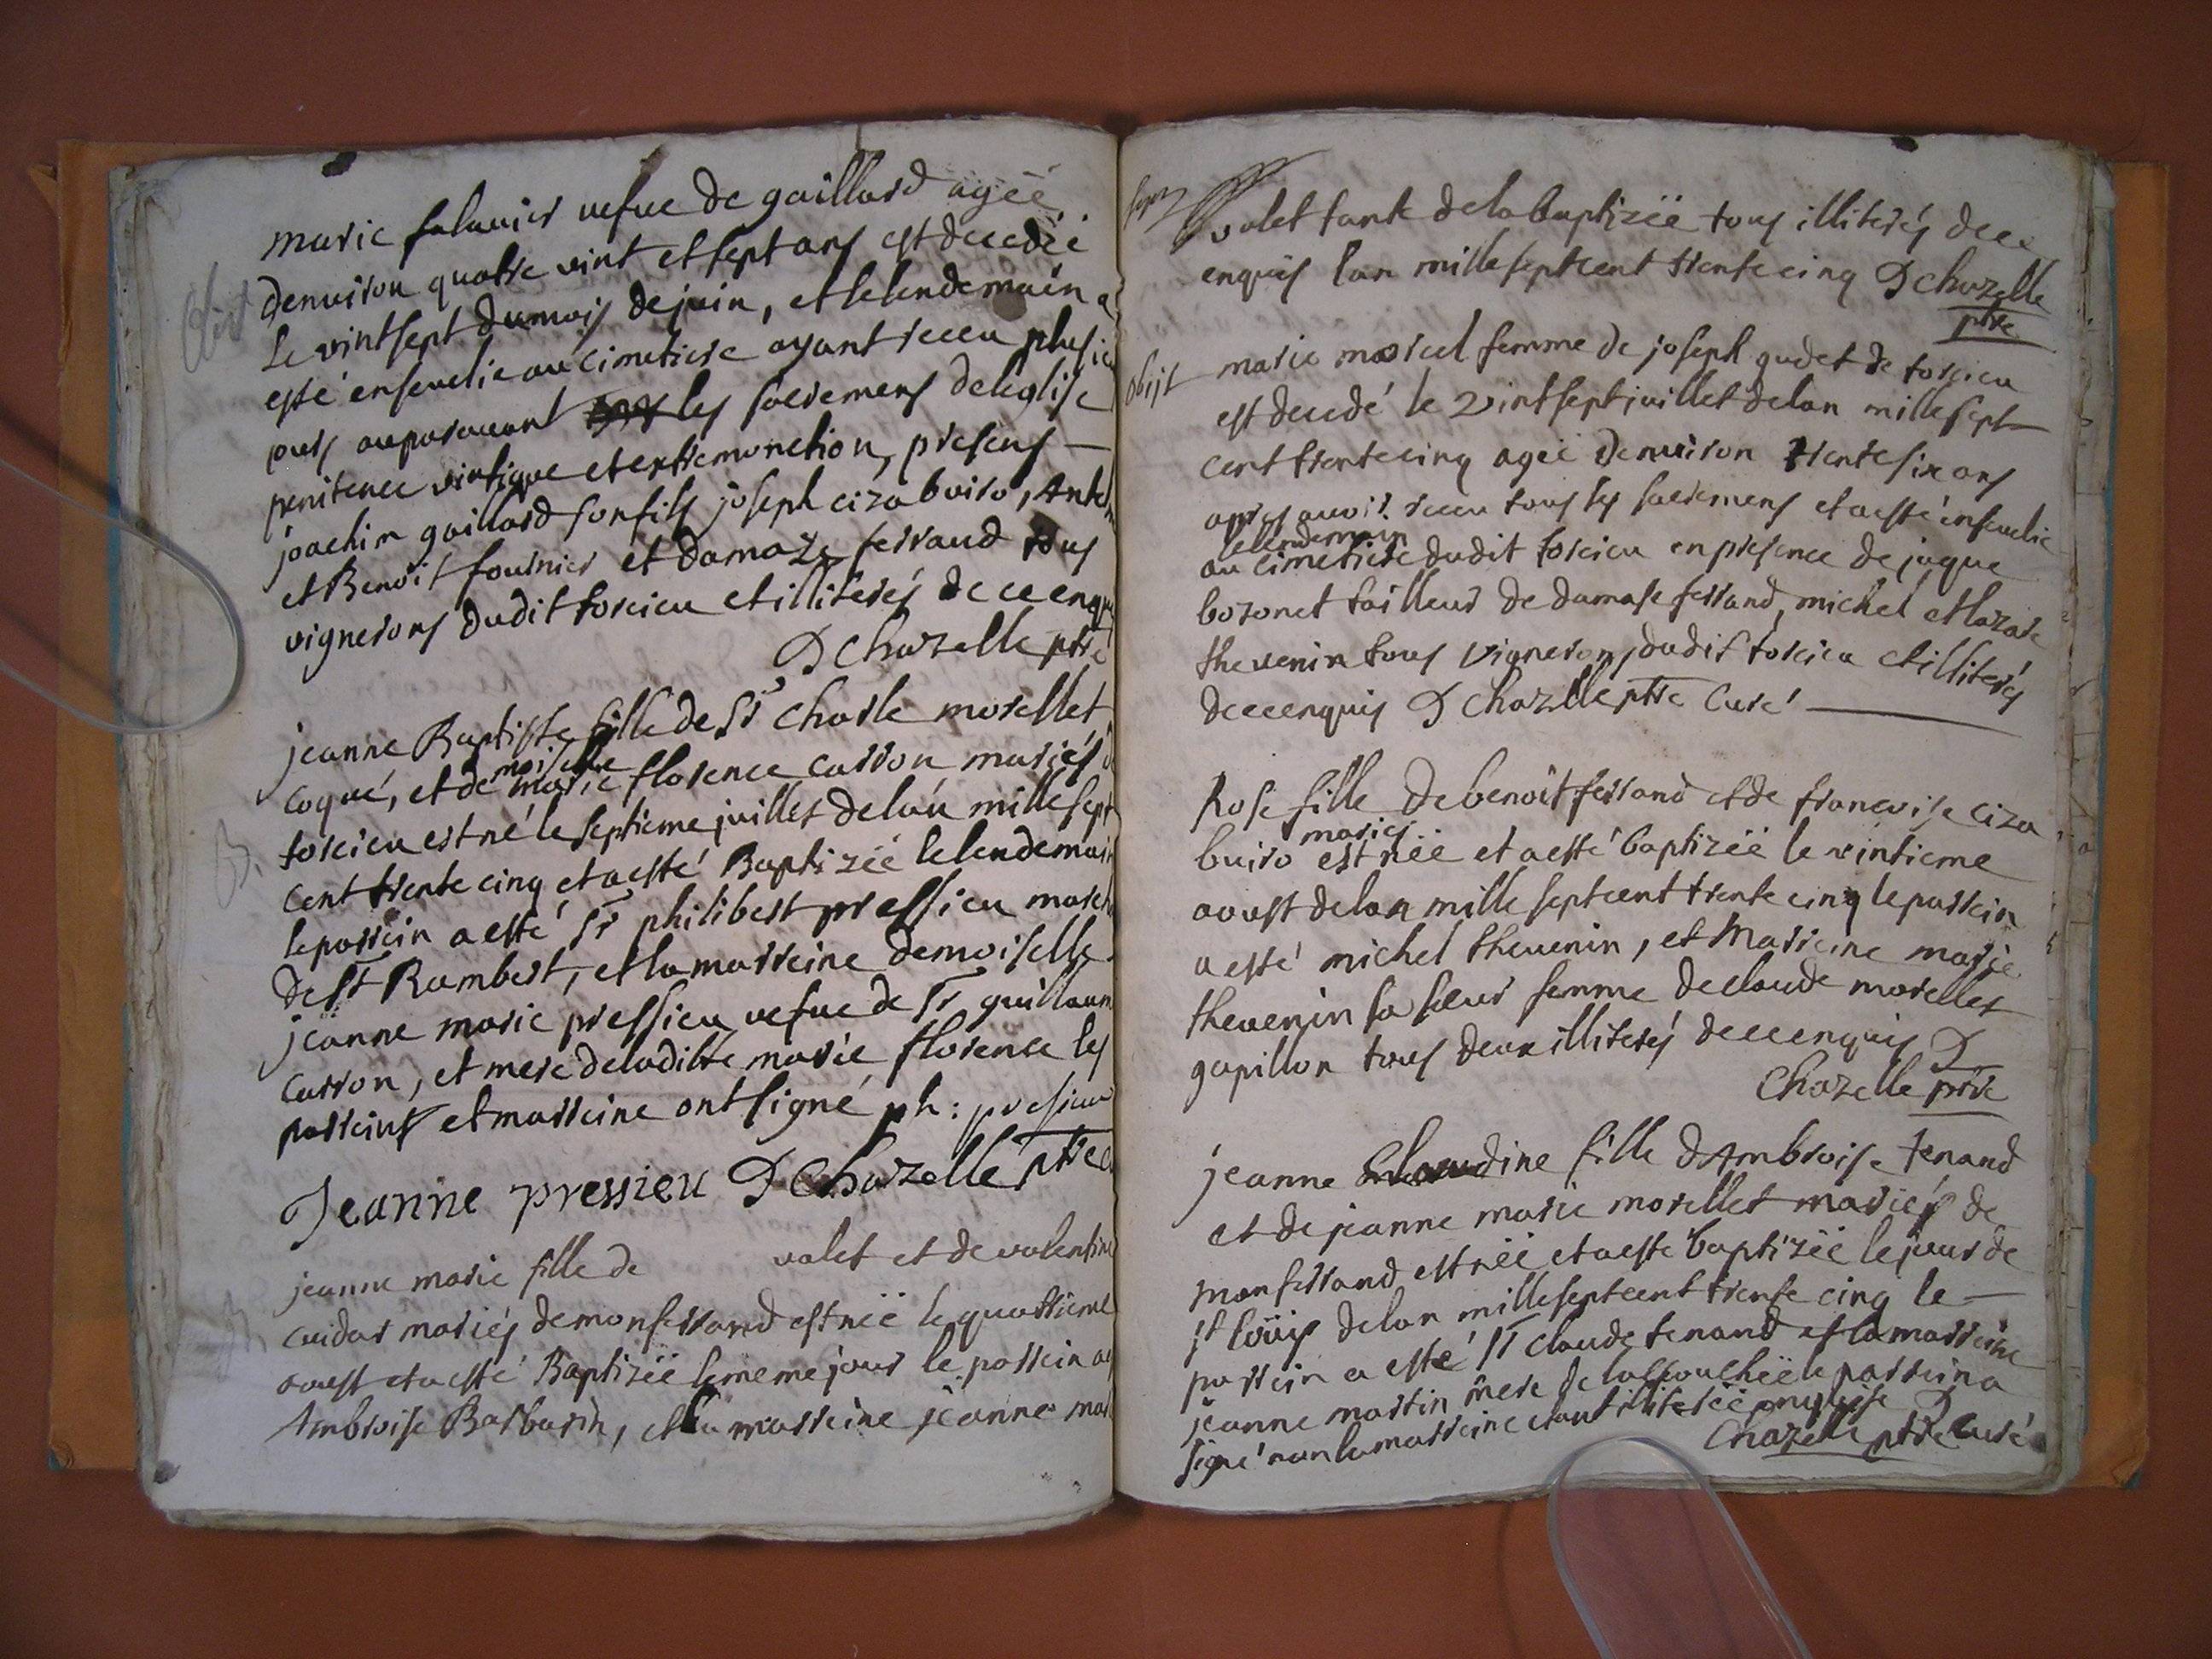 obijt
marie salavier vefve de gaillard ageë
denviron quatre vint et sept ans est decedeë
le vintsept dumois de juin, et le lendemain a
esté ensevelie au cimetiere ayant receu plusie
ours auparavant les sacremens deleglise
penitence viatique et extremonction, presens
joachim gaillard son fils joseph cizabuiro, Antel
et Benoit fournier et damaze ferrand tous
vignerons dudit torcieu et illiterés de ce enqu
D chazelle ptre
B.
jeanne Baptiste fille de Sr charle morellet
coqué, et de moiselle marie florence carron mariés d
torcieu est né le septieme juillet delan mille sept
cent trente cinq et a esté Baptizeë le lendemain
le parrein a esté Sr philibert pressieu march
de St Rambert, et la marreine demoiselle
jeanne marie pressieu vefve de Sr guillaum
carron, et mere deladitte marie florence les
parreins et marreine ont signé ph: presieu
Jeanne pressieu D Chazelle ptre c
B.
jeanne marie fille de valet et de valentine
cuidar mariés de monferrand est neë le quatrieme
aoust et a esté Baptizeë le meme jour le parrein a e
Ambroise Barbarin, et la marreine jeanne mar
valet tante de la baptizeë tous illiterés de ce
enquis lan mille septcent trente cinq D chazelle
ptre
obijt
marie marcel femme de joseph gudet de torcieu
est decedé le vintsept juillet delan mille sept
cent trente cinq ageë denviron trente six ans
apres avoir receu tous les sacremens et a esté ensevelie
lelendemain
au cimetiere dudit torcieu en presence de jaque
bozonet tailleur de damase ferrand, michel et lazare
thevenin tous vignerons dudit torcieu et illiterés
dece enquis D chazelle ptre Curé
Rose fille de benoit ferrand et de francoise ciza
mariés
buiro est neë et a esté baptizeë le vintieme
aoust delan mille septcent trente cinq le parrein
a esté michel thevenin, et Marreine marie
thevenin sa sœur femme de claude morellet
gapillon tous deux illiterés dece enquis D
Chazelle ptre
jeanne Claudine fille dAmbroise tenand
et de jeanne marie morellet mariés de
monferrand est neë et a esté baptizeë le jour de
St loüis delan mille septcent trente cinq le
parrein a esté Sr claude tenand et la marreine
jeanne martin mere de laccoucheë le parrein a
signé non la marreine etant illitereë enquise D
Chazelle ptre curé